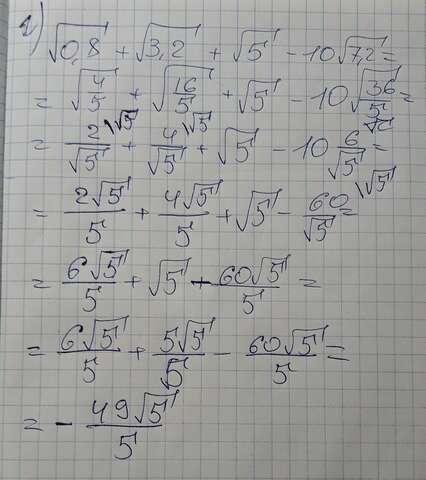 г) √0,8 + √3,2 + √5 - 10√7,2 =
= √(4/5) + √(16/5) + √5 - 10√(36/5) =
= 2/√5 \√5 + 4/√5 \√5 + √5 - 10 6/√5 =
= 2√5/5 + 4√5/5 + √5 - 60/√5 \√5 =
= 6√5/5 + √5 - 60√5/5 =
= 6√5/5 + 5√5/5 - 60√5/5 =
= - 49√5/5